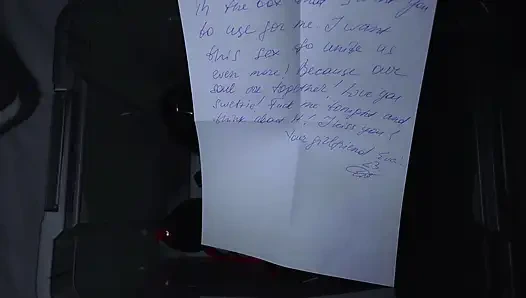 in the box that I want you
to use for me. I want
this sex to unite us
even more! Because our
soul are together! Love you
sweetie! Fuck me tonight and
think about it! I kiss you!
Your girlfriend Eva
<3